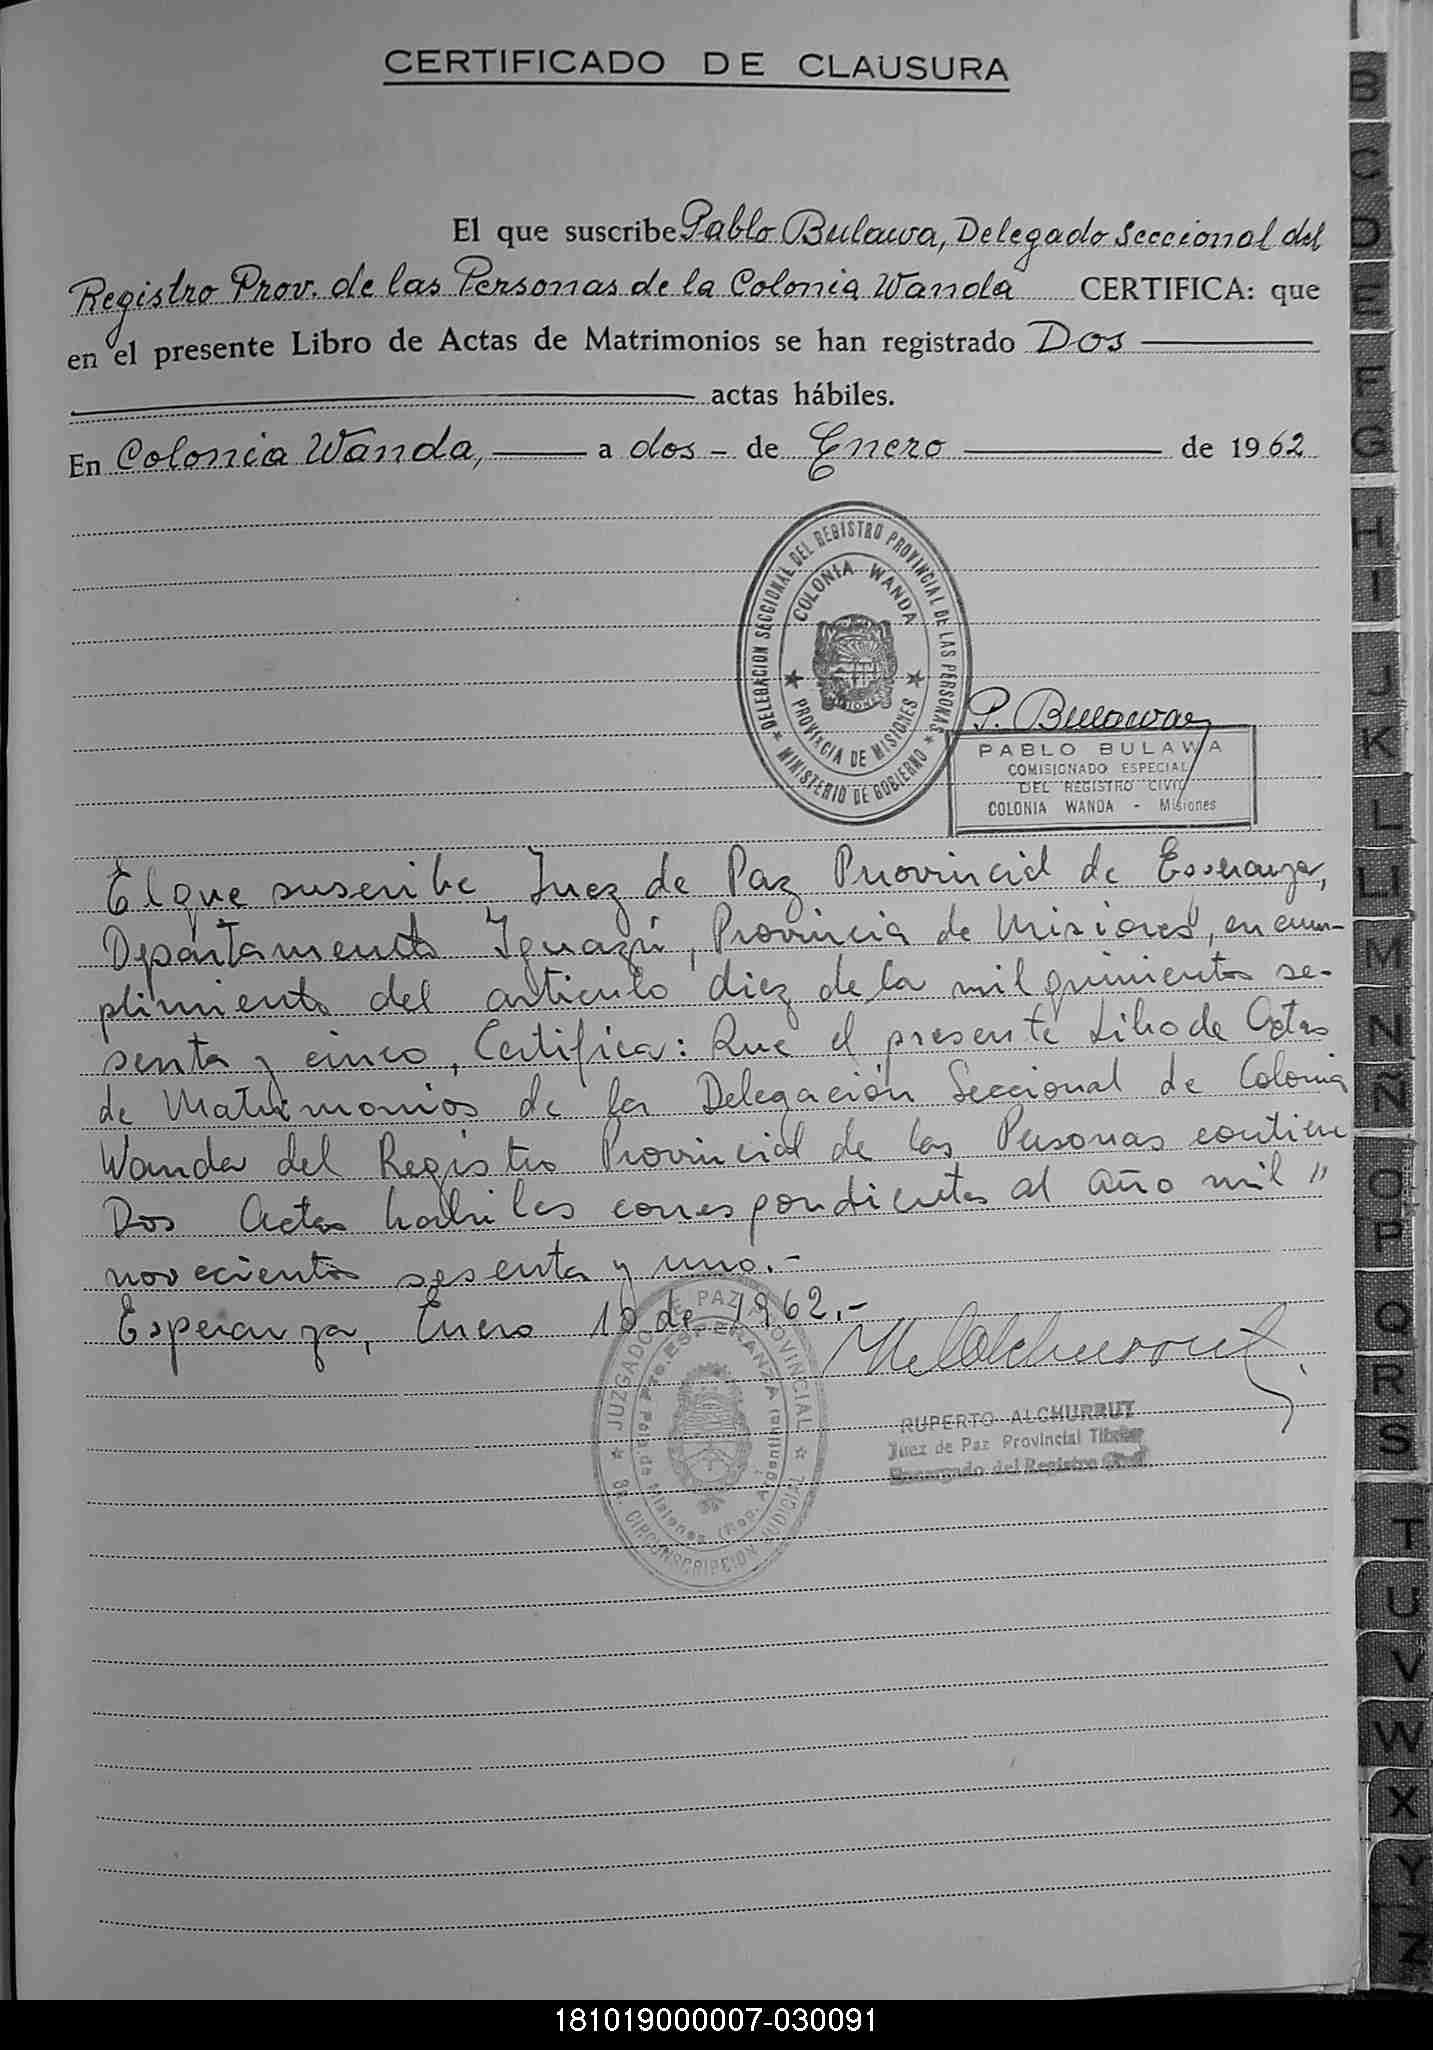 CERTIFICADO DE CLAUSURA
El que suscribe Pablo Bulawa, Delegado Seccional del
Registro Prov. de las Personas de la Colonia Wanda CERTIFICA: que
en el presente Libro de Actas de Matrimonios se han registrado Dos
actas hábiles.
En Colonia Wanda, a dos - de Enero de 1962
DELEGACION SECCIONAL DEL REGISTRO PROVINCIAL DE LAS PERSONAS
★ MINISTERIO DE GOBIERNO ★
COLONIA WANDA
★ PROVINCIA DE MISIONES ★
MISIONES
P. Bulawa
PABLO BULAWA
COMISIONADO ESPECIAL
DEL REGISTRO CIVIL
COLONIA WANDA - Misiones
El que suscribe, Juez de Paz Provincial de Esperanza,
Departamento Iguazú, Provincia de Misiones, en cum-
plimiento del artículo diez de la mil quinientos se-
senta y cinco, Certifica: Que el presente Libro de Actas
de Matrimonios de la Delegación Seccional de Colonia
Wanda del Registro Provincial de las Personas contiene
Dos Actas habiles correspondientes al año mil "
novecientos sesenta y uno.-
Esperanza, Enero 10 de 1962.-
JUZGADO DE PAZ PROVINCIAL
★ 3a. CIRCUNSCRIPCION JUDICIAL ★
Pto. ESPERANZA
Pcia. de Misiones (Rep. Argentina)
RUPERTO ALCHURRUT
Juez de Paz Provincial Titular
Encargado del Registro Civil
B
C
D
E
F
G
H
I
J
K
L
LL
M
N
Ñ
O
P
Q
R
S
T
U
V
W
X
Y
Z
181019000007-030091